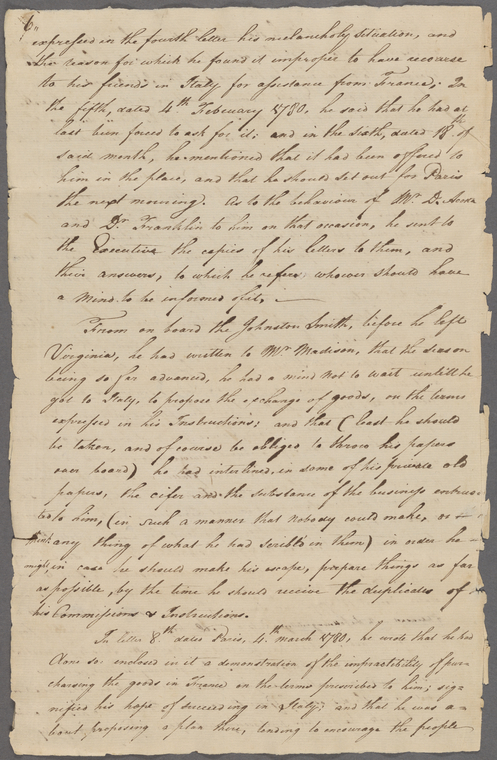 6
expressed in the fourth letter his melancholy situation, and
the reason for which he found it improper to have recourse
to his friends in Italy for assistance from France; In
the fifth, dated 4th February 1780. he said that he had at
last been forced to ask for it; and in the Sixth, dated 18th of
said month, he mentioned that it had been offered to
him in the place, and that he should set out for Paris
the next morning. As to the behaviour of Mr D. Acosta
and Dr Franklin to him on that occasion, he sent to
the Executive the copies of his letters to them, and
their answers, to which he refers whoever should have
a mind to be informed of it. —
From on board the Johnston Smith, before he left
Virginia, he had written to Mr Madison, that the season
being so far advanced, he had a mind not to wait untill he
got to Italy, to propose the exchange of goods, on the terms
expressed in his Instructions; and that (least he should
be taken, and of course be obliged to throw his papers
over board) he had interlined, in some of his private old
papers, the cifer and the substance of the business entrus-
ted to him, (in such a manner that nobody could make, or
think any thing of what he had scribl'd in them) in order he
might, in case he should make his escape, prepare things as far
as possible, by the time he should receive the duplicates of
his Commissions & Instructions.
In letter 8th dated Paris, 4th march 1780, he wrote that he had
done so: enclosed in it a demonstration of the impractibility of pur-
chasing the goods in France on the terms prescribed to him; sig-
nifies his hope of succeeding in Italy; and that he was a-
bout proposing a plan there, tending to encourage the people